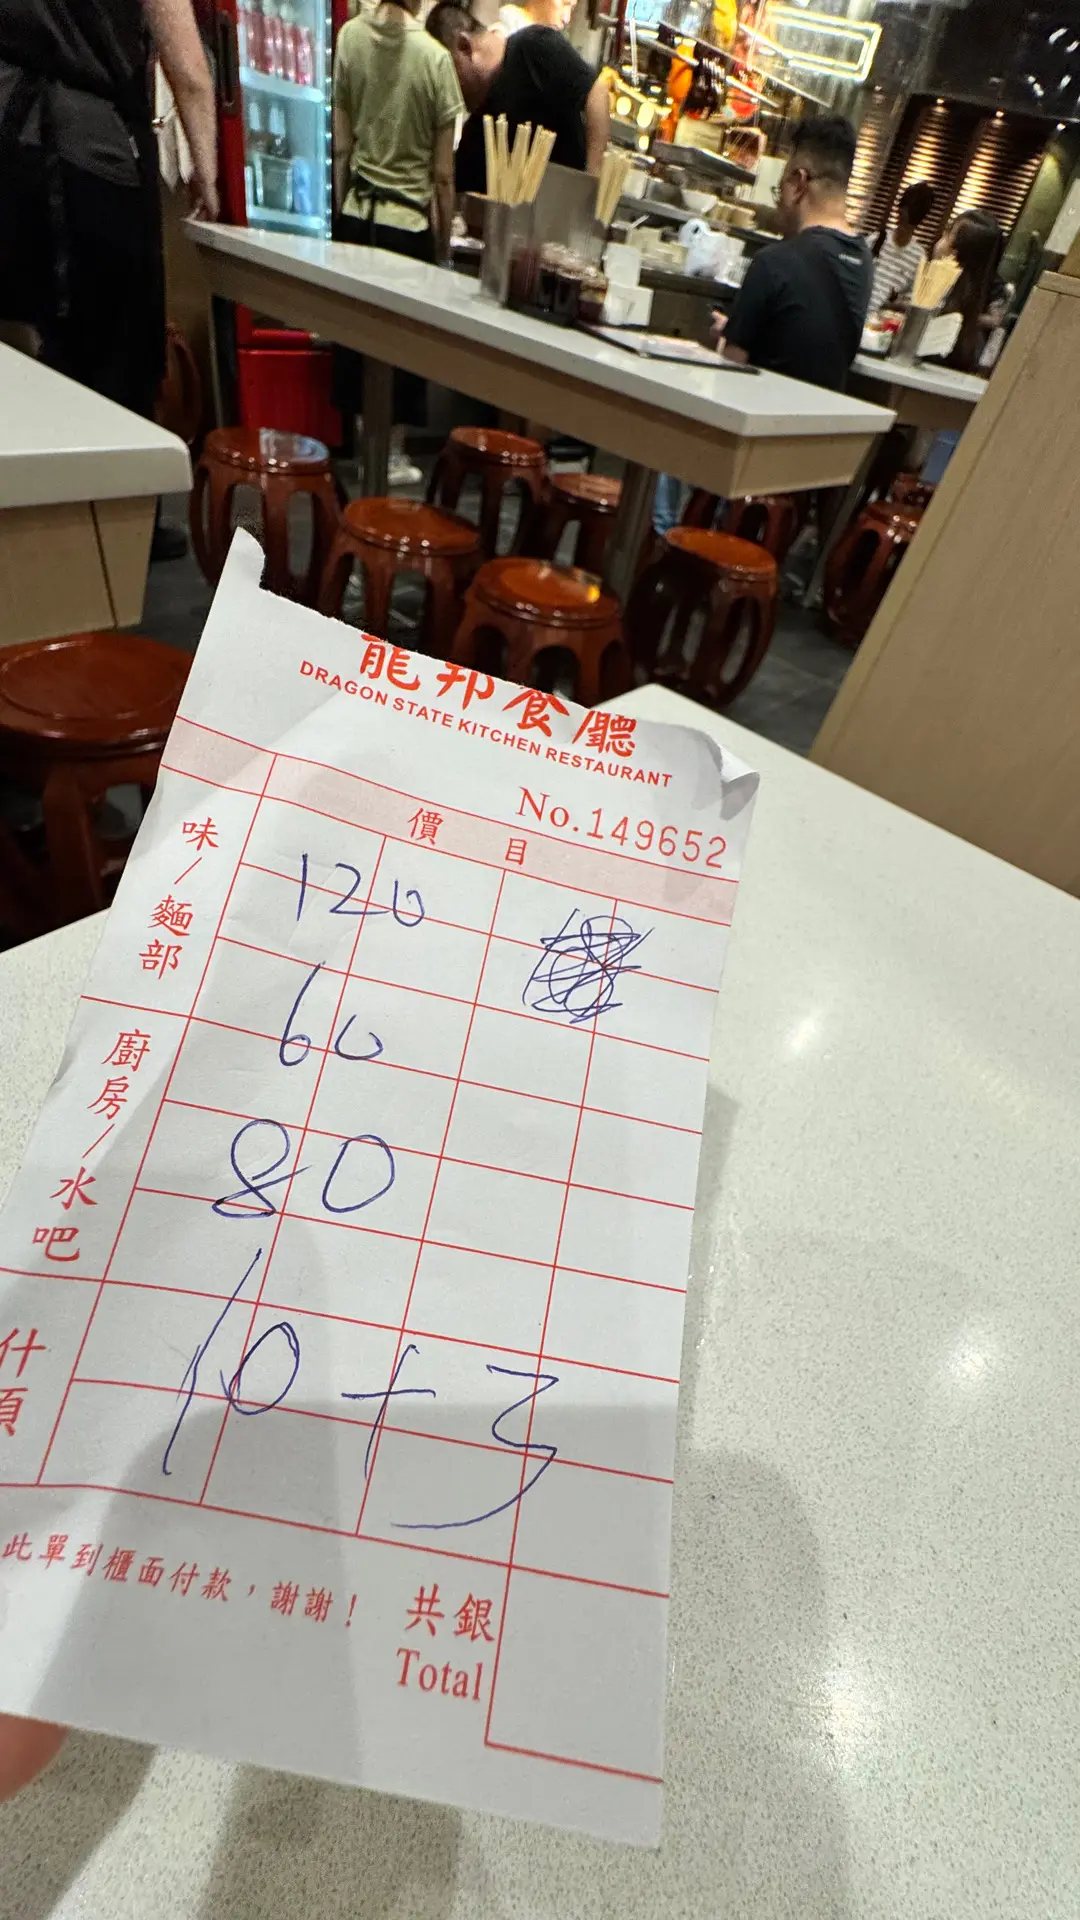 龍邦食廳
DRAGON STATE KITCHEN RESTAURANT
No.149652
價目
味/麵部
120
60
廚房/水吧
80
什項
10+3
此單到櫃面付款，謝謝！
共銀
Total